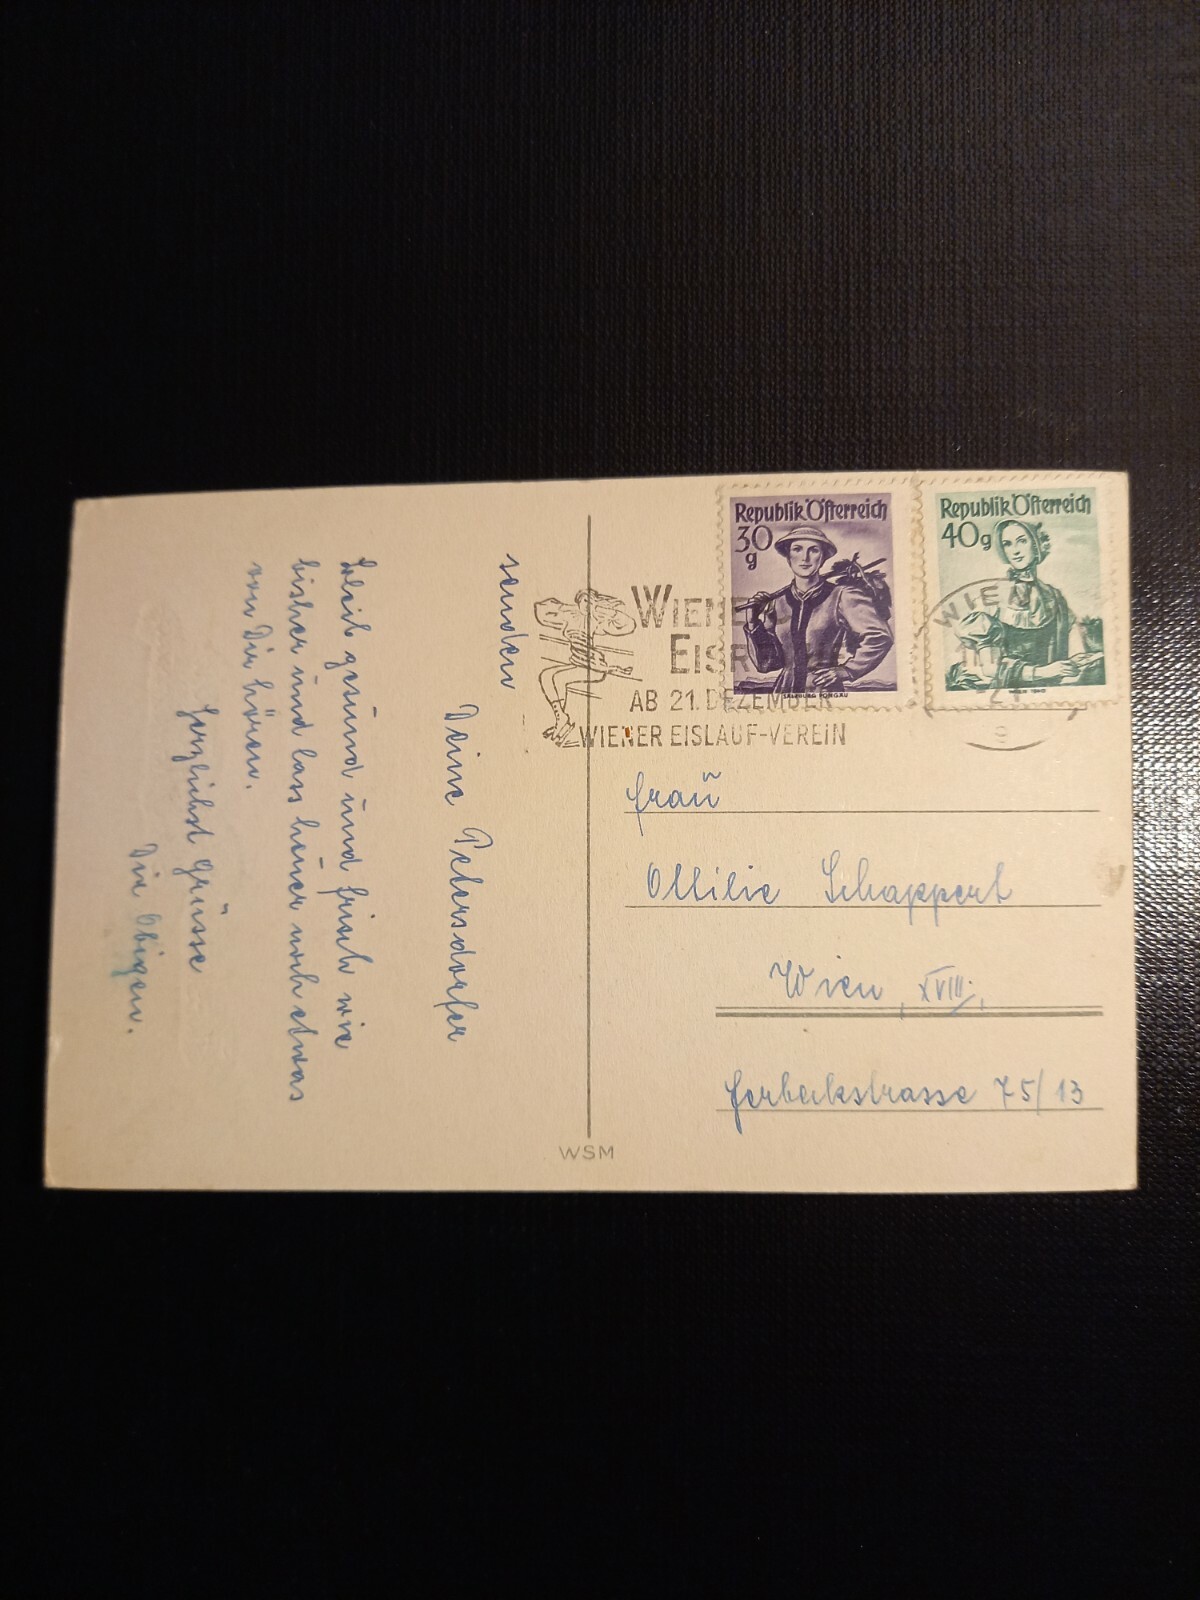 senden
Deine Petersdorfer
Bleib gesund und frisch wie
bisher und lass heuer noch etwas
von Dir hören.
Herzlichst Grüsse
Die Obigen.
Republik Österreich
30g
SALZBURG PONGAU
Republik Österreich
40g
WIEN 1840
WIEN
WIENER
EISREVUE
AB 21. DEZEMBER
WIENER EISLAUF-VEREIN
Frau
Ottilie Schappert
Wien, XVIII.,
75/13
WSM